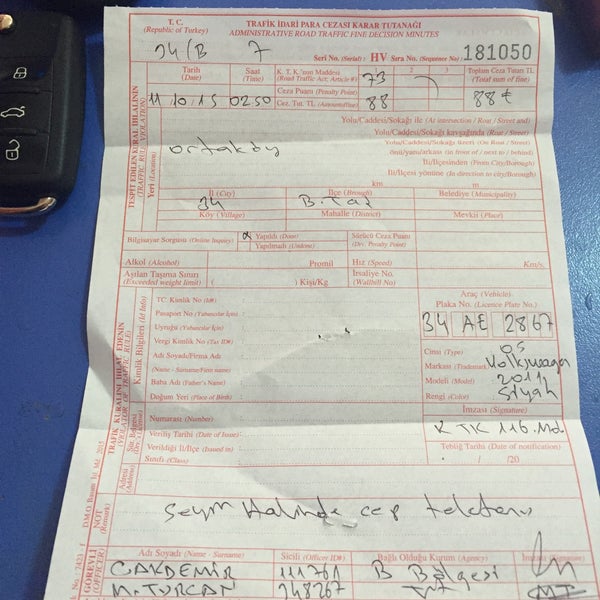 T. C.
(Republic of Turkey)
TRAFİK İDARİ PARA CEZASI KARAR TUTANAĞI
ADMINISTRATIVE ROAD TRAFFIC FINE DECISION MINUTES
34/B 7
Seri No. (Serial): HV Sıra No. (Sequence No) 181050
Tarih (Date) Saat (Time)
K. T. K.'nun Maddesi (Road Traffic Act; Article #) 73 2 3
Toplam Ceza Tutarı TL (Total sum of fine)
11 10 15 0250
Ceza Puanı (Penalty Point)
Cez. Tut. TL (Amount of fine) 88
88 ₺
TESPİT EDİLEN KURAL İHLALININ
(TRAFFIC RULE VIOLATION)
Yeri (Location)
ortaköy
Yolu/Caddesi/Sokağı ile (At intersection / Road / Street)
Yolu/Caddesi/Sokağı kavşağında (Road / Street)
Yolu/Caddesi/Sokağı üzeri (On Road / Street)
önü/yanı/arkası (in front of / next to / behind)
İli/İlçesinden (From City/Borough)
İli/İlçesi yönüne (In direction to city/Borough)
km m
İl (City) İlçe (Brough) Belediye (Municipality)
34 B.Taş
Köy (Village) Mahalle (District) Mevkii (Place)
Bilgisayar Sorgusu (Online Inquiry) Yapıldı (Done)
Yapılmadı (Undone)
Sürücü Ceza Puanı (Drv. Penalty Point)
Alkol (Alcohol) Promil Hız (Speed) Km/s.
Aşılan Taşıma Sınırı
(Exceeded weight limit) ( ) Kişi/Kg
İrsaliye No.
(Waillbill No)
TRAFİK KURALINI İHLAL EDENİN
(VIOLATOR OF TRAFFIC RULE)
Kimlik Bilgileri (Id Info)
TC Kimlik No (Id#)
Pasaport No (Yabancılar İçin)
Uyruğu (Yabancılar İçin)
Vergi Kimlik No (Tax ID#)
Adı Soyadı/Firma Adı
(Name - Surname/Firm name)
Baba Adı (Father's Name)
Doğum Yeri (Place of Birth)
Araç (Vehicle)
Plaka No. (Licence Plate No.)
34 AE 2867
Cinsi (Type) 05
Markası (Trademark) Volkswagen
Modeli (Model) 2011
Rengi (Color) Siyah
İmzası (Signature)
KTK 116. Md.
Numarası (Number)
Veriliş Tarihi (Date of Issue)
Verildiği İl/İlçe (Issued in)
Sınıfı (Class)
Tebliğ Tarihi (Date of notification)
/ /20
Adresi
(Address)
D.M.O. Basım İşl. Md. 2015
NOT
(Remark)
Seyir Halinde cep telefonu
GÖREVLİ
(OFFICER)
Adı Soyadı (Name - Surname) Sicili (Officer ID#) Bağlı Olduğu Kurum (Agency) İmzası (Signature)
CAKDEMİR 111761 B Bölgesi
M. TURCAN 248267